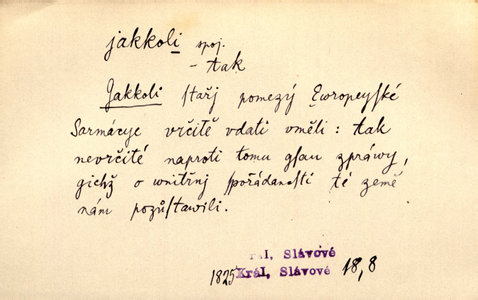 jakkoli spoj.
- tak
Gakkoli stařj pomezý Ewropeyſké
Sarmácye vrčitě vdati vměli : tak
nevrčité naproti tomu gſau zpráwy,
gichž o wnitřnj ſpořádanoſti té země
nám pozůſtawili.
Král, Slávové
1825 Král, Slávové 18,8